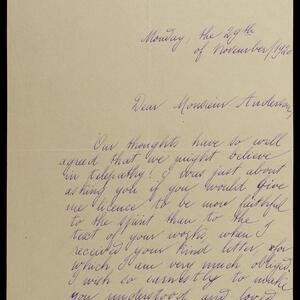 Monday, the 29th
of November/1920
Dear Monsieur Anderson,
Our thoughts have so well
agreed that we might believe
in telepathy! I was just about
asking you if you would give
me licence to be more faithful
to the spirit than to the
text of your works, when I
received your kind letter, for
which I am very much obliged.
I wish so earnestly to make
you understood and loved